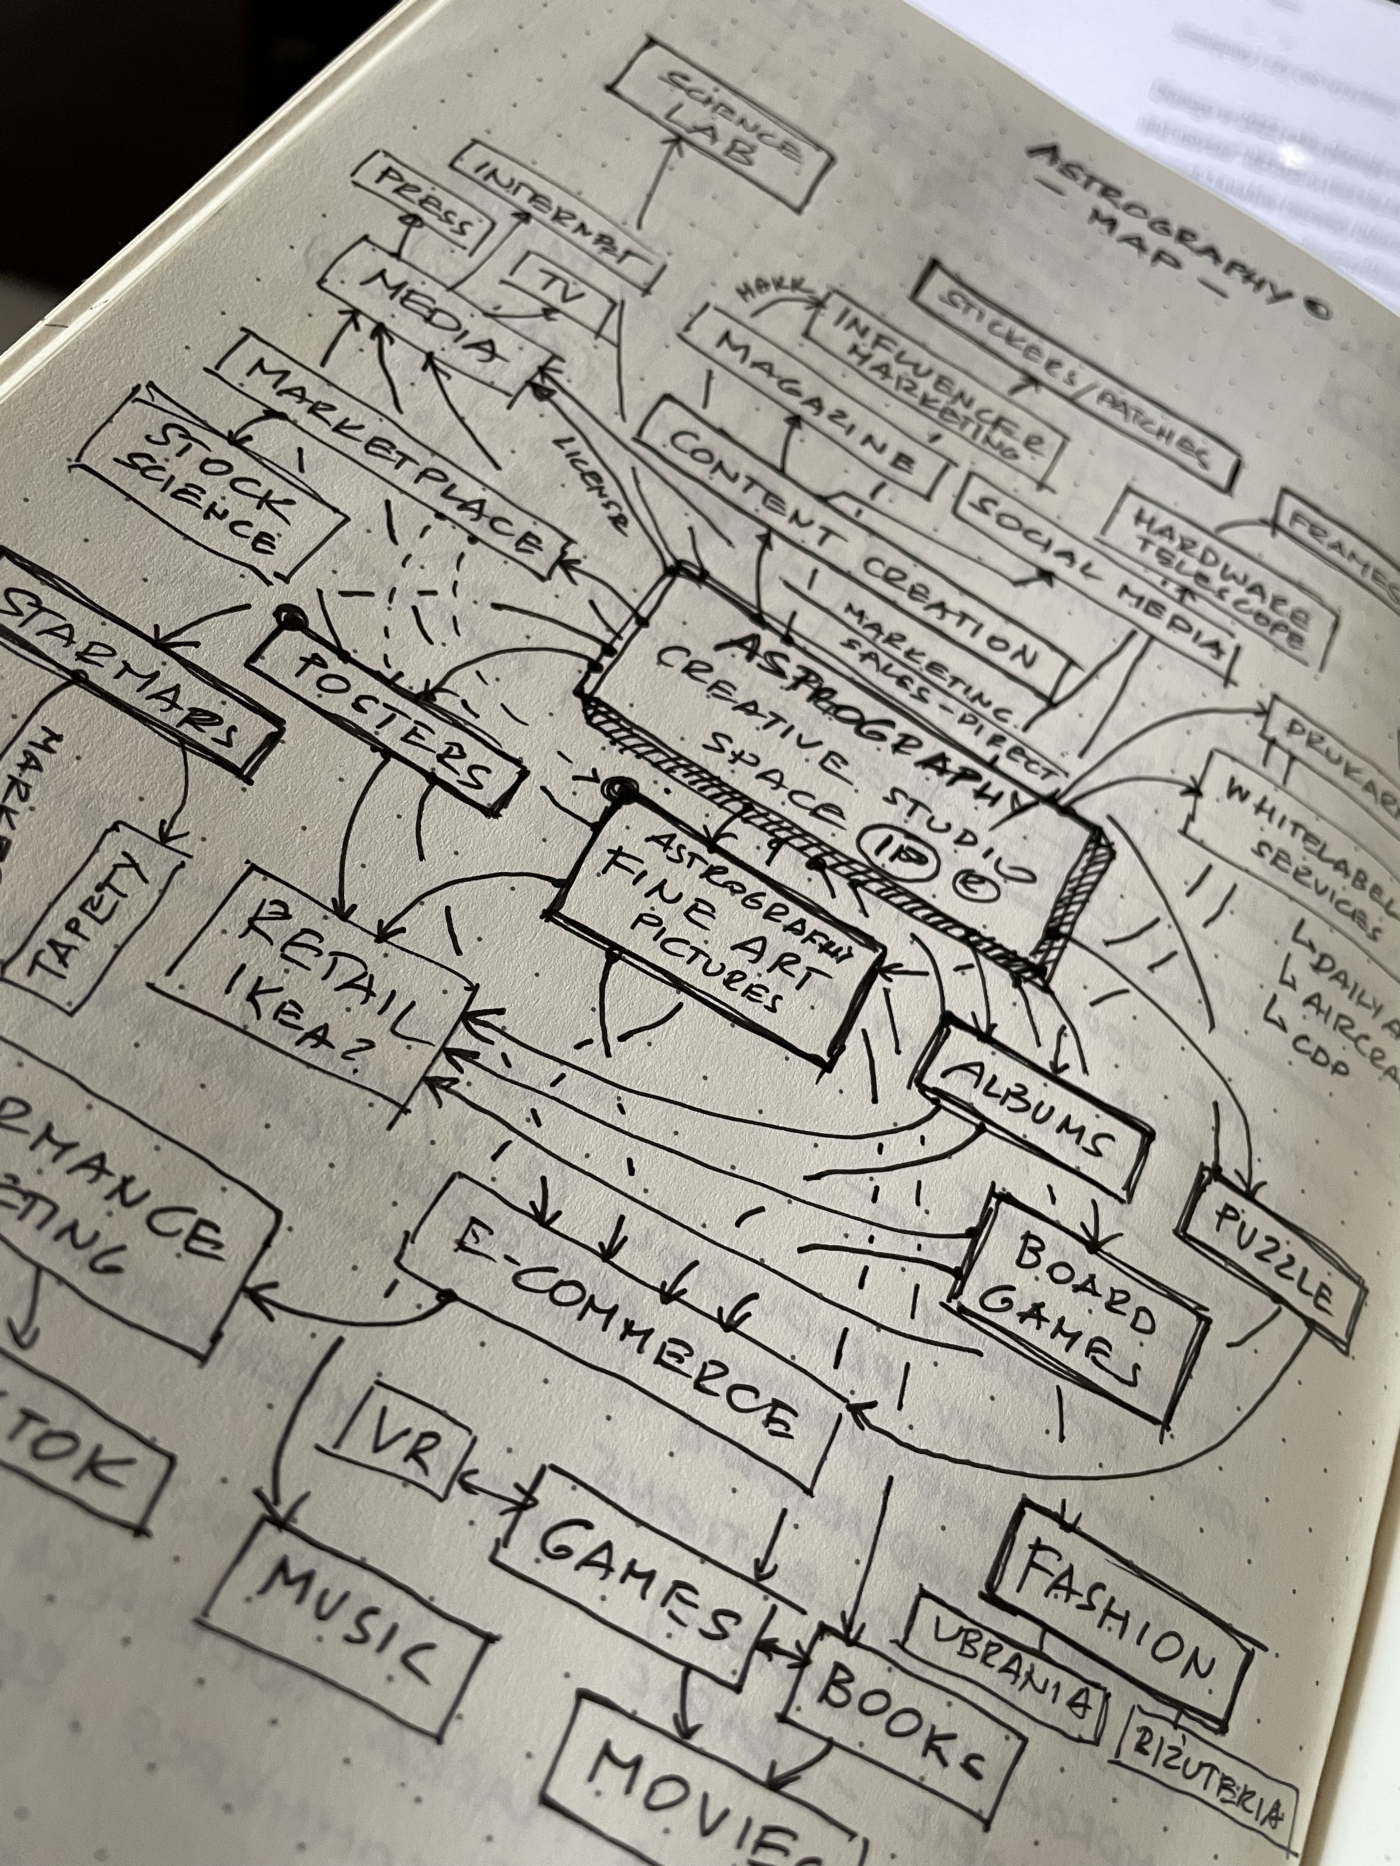 ASTROGRAPHY
- MAP -
SCIENCE
LAB
INTERNET
PRESS
TV
MEDIA
STICKERS/PATCHES
INFLUENCER
MARKETING
MAGAZINE
MARKETPLACE
STOCK
SCIENCE
LICENSE
CONTENT CREATION
SOCIAL MEDIA
HARDWARE
TELESCOPE
FRAME
MARKETING
SALES-DIRECT
ASTROGRAPHY
CREATIVE STUDIO
SPACE IP R
STARMAPS
POSTERS
DRUKAR
WHITELABEL
SERVICES
↳ DAILY A
↳ AIRCRA
↳ CDP
TAPETY
RETAIL
IKEA?
ASTROGRAPHY
FINE ART
PICTURES
ALBUMS
PUZZLE
BOARD
GAMES
RMANCE
ETING
E-COMMERCE
TOK
VR
GAMES
MUSIC
BOOKS
FASHION
UBRANIA
BIŻUTERIA
MOVIES